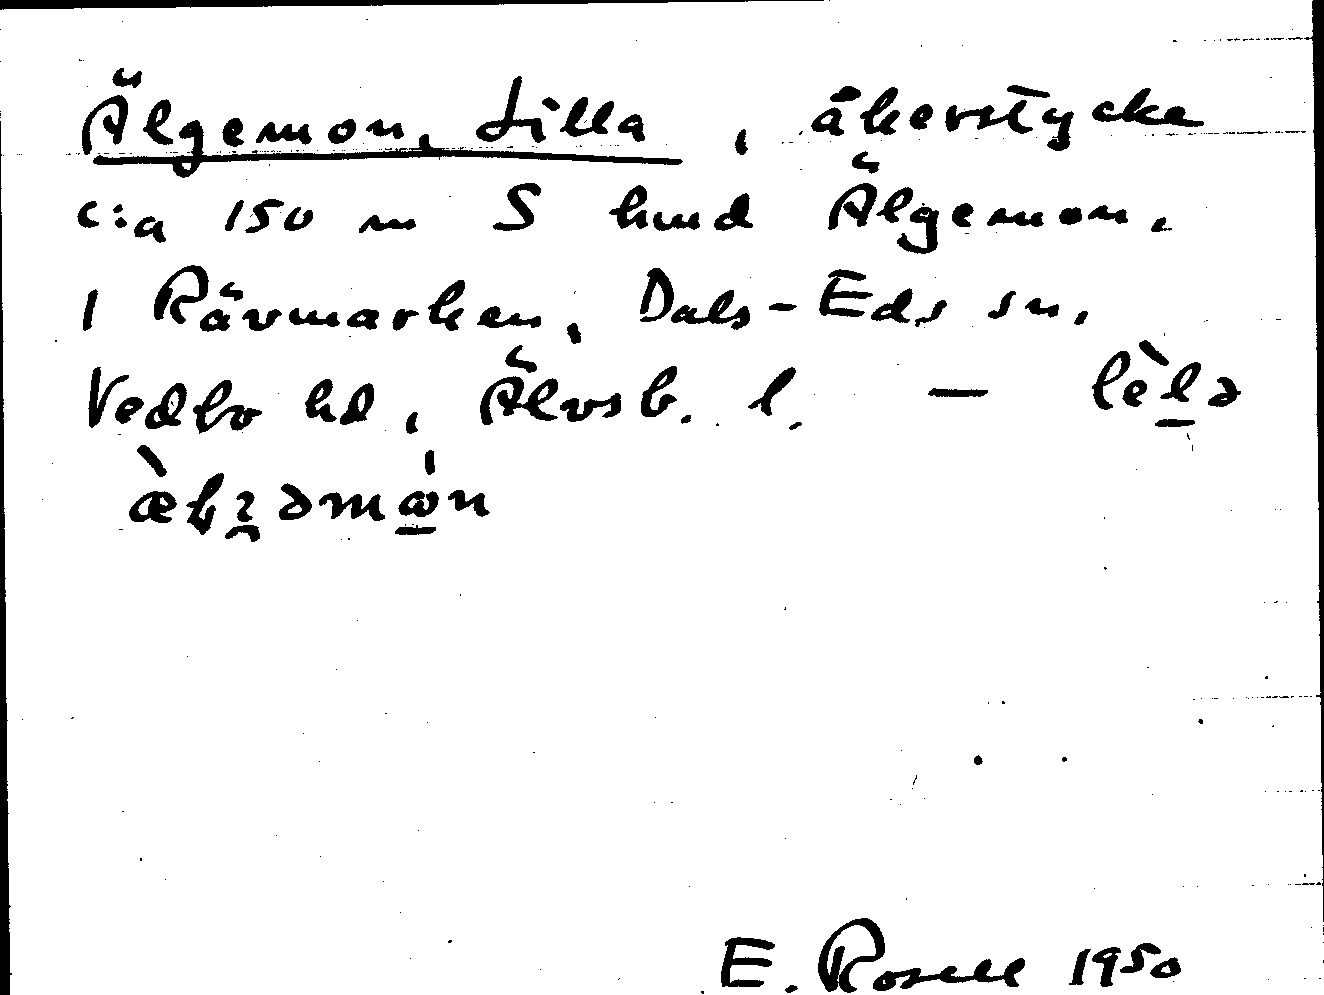 Älgemon, Lilla, åkerstycke
c:a 150 m S hmd Älgemon.
I Rävmarken, Dals-Eds sn,
Vedbo hd, Älvsb. l. — lèlə